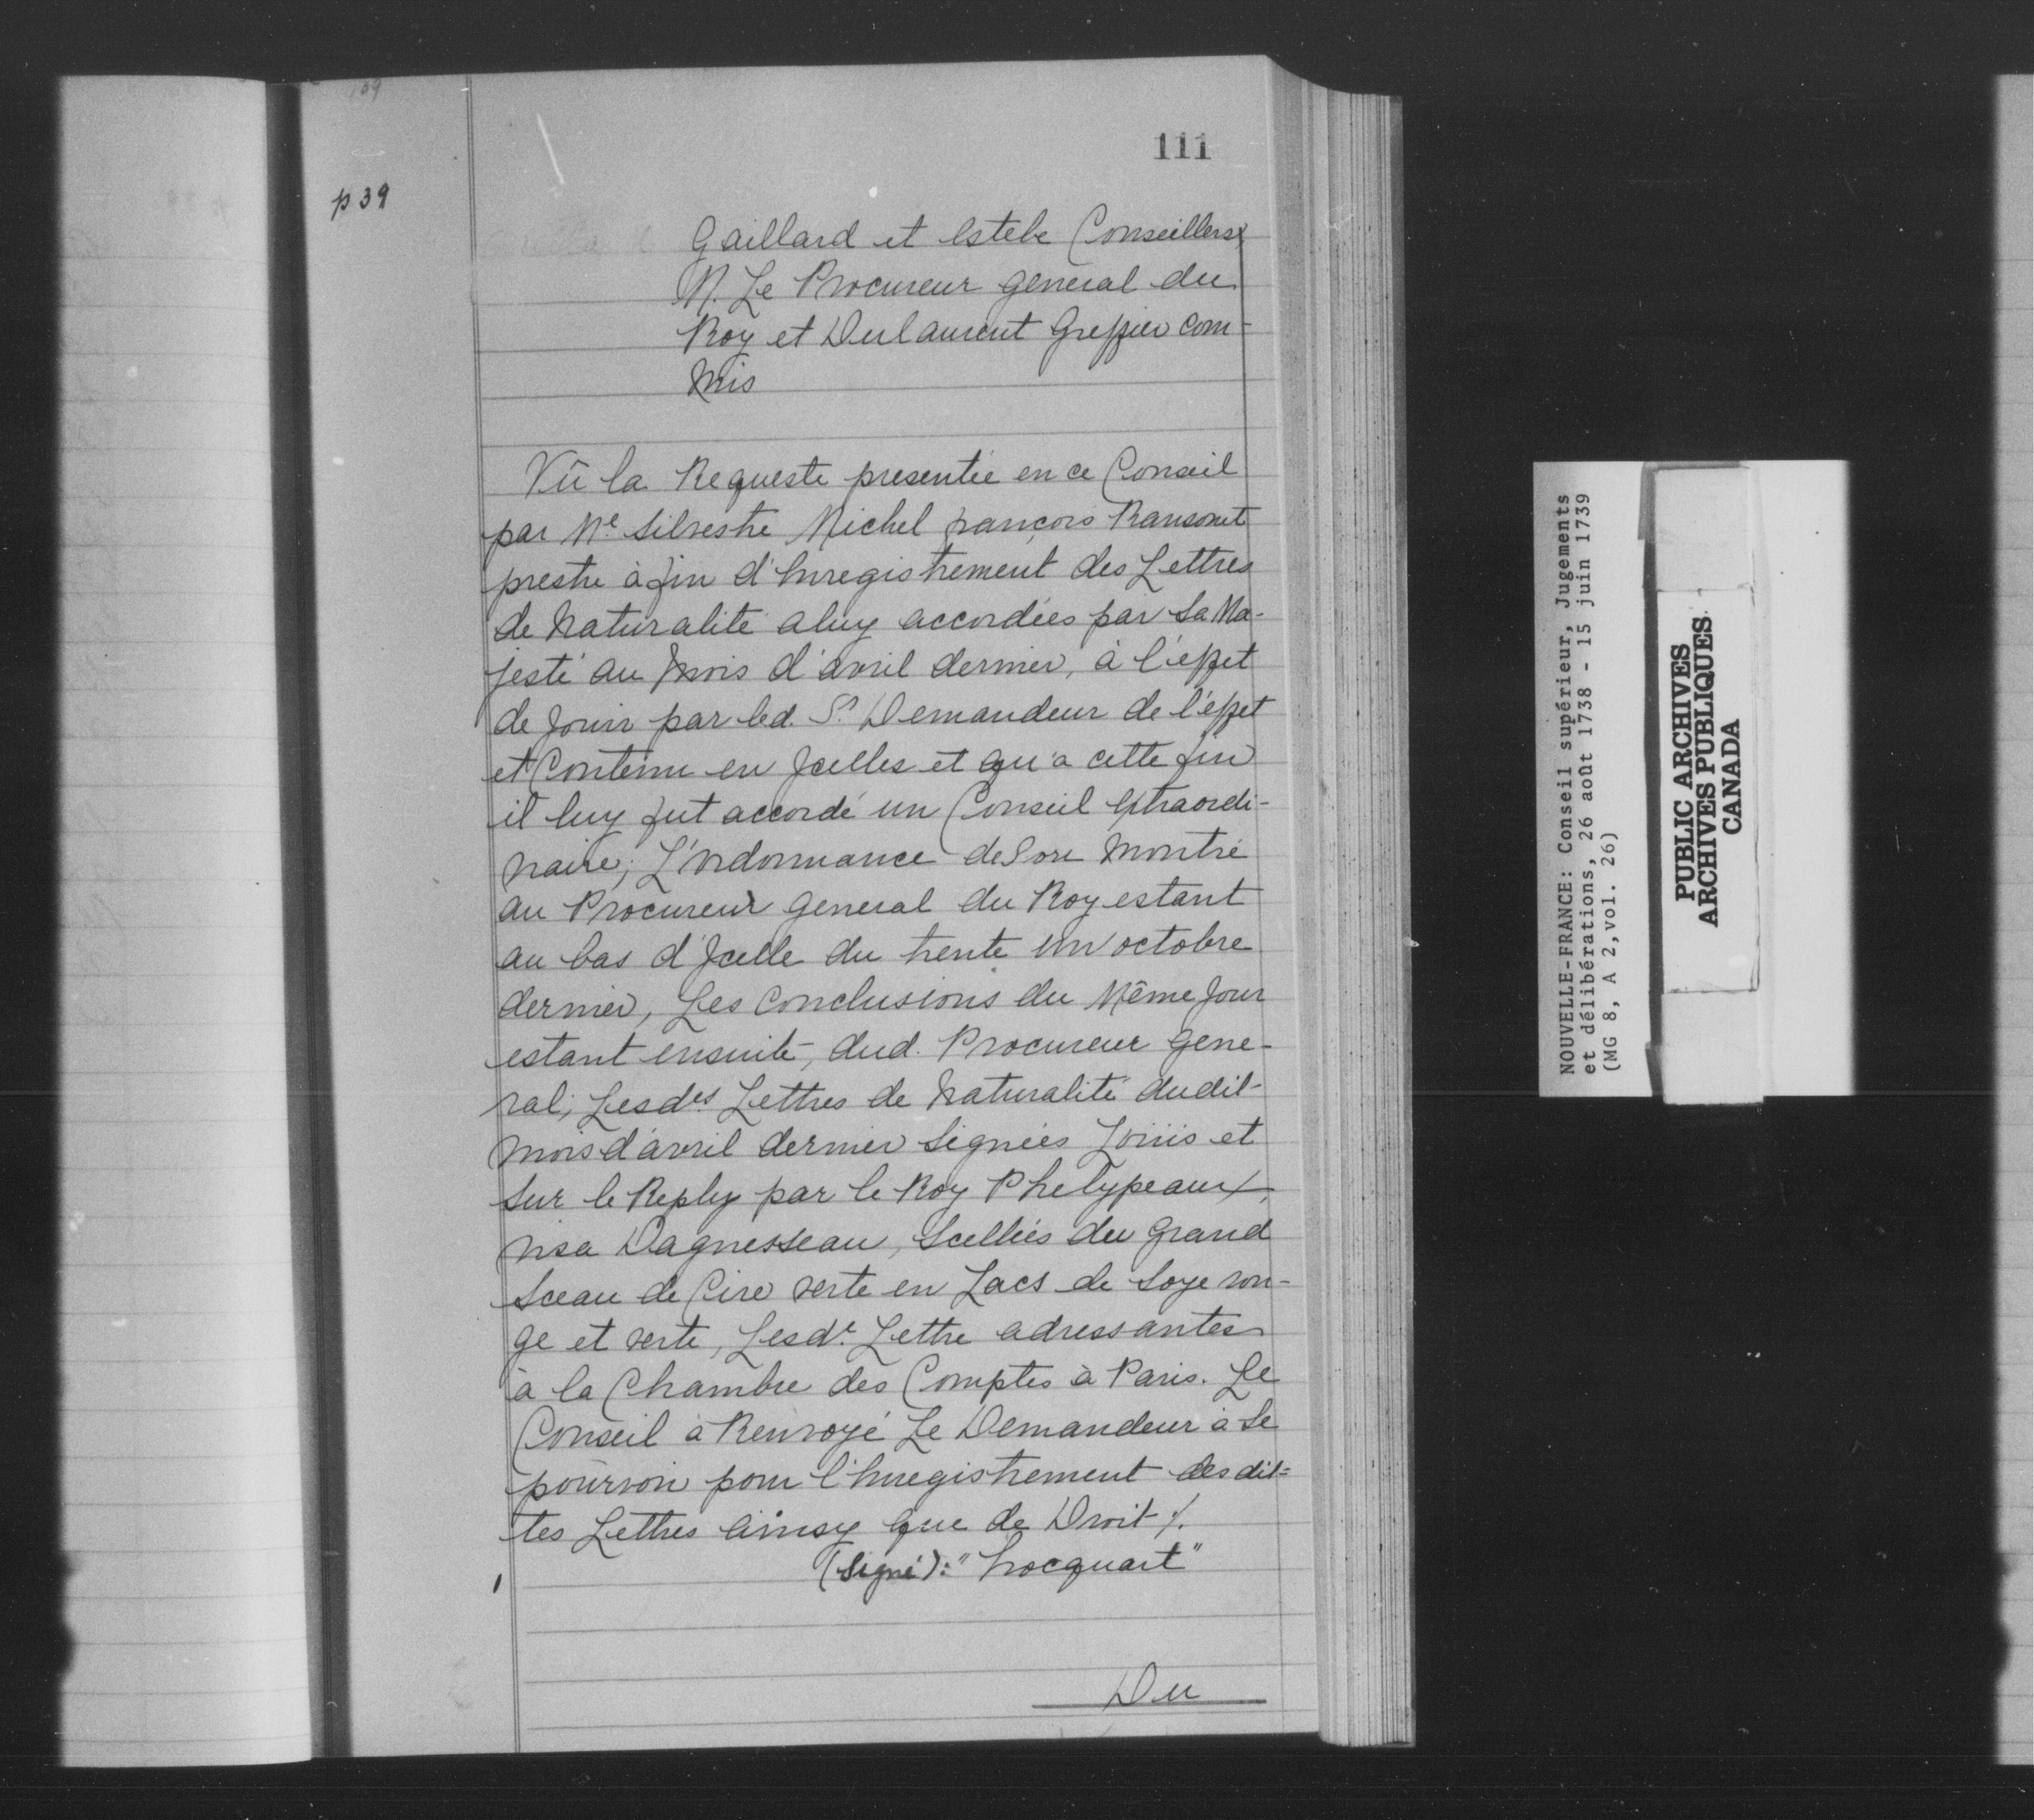 109
111
p 39
Gaillard et Estebe Conseillers
M. Le Procureur general du
Roy et Dulaurent Greffier com-
mis
Vû la Requeste presentée en ce Conseil
par Me Silvestre Michel françois Ransonet
prestre à fin d'Enregistrement des Lettres
de Naturalité a luy accordées par Sa Ma-
jesté au Mois d'avril dernier, à l'éffet
de Jouir par led. Sr Demandeur de l'éffet
et Contenu en Jcelles et qu'a cette fin
il luy fut accordé un Conseil Extraordi-
naire; L'ordonnance de Soit Montré
au Procureur general du Roy estant
au bas d'Jcelle du trente un octobre
dernier, Les Conclusions du Même Jour
estant ensuite, dud. Procureur gene-
ral; Lesdes Lettres de Naturalité dudit
mois d'avril dernier Signées Loüis et
Sur le Reply par le Roy Phelypeaux,
visa Daguesseau, Scellées du Grand
Sceau de Cire verte en Lacs de Soye rou-
ge et verte, Lesde. Lettre adressantes
à la Chambre des Comptes à Paris. Le
Conseil à Renvoyé Le Demandeur à Se
pourvoir pour l'Enregistrement desdit=
tes Lettres Ainsy que de Droit ⁒.
(Signé): "hocquart"
Du
NOUVELLE-FRANCE: Conseil supérieur, Jugements
et délibérations, 26 août 1738 - 15 juin 1739
(MG 8, A 2,vol. 26)
PUBLIC ARCHIVES
ARCHIVES PUBLIQUES
CANADA